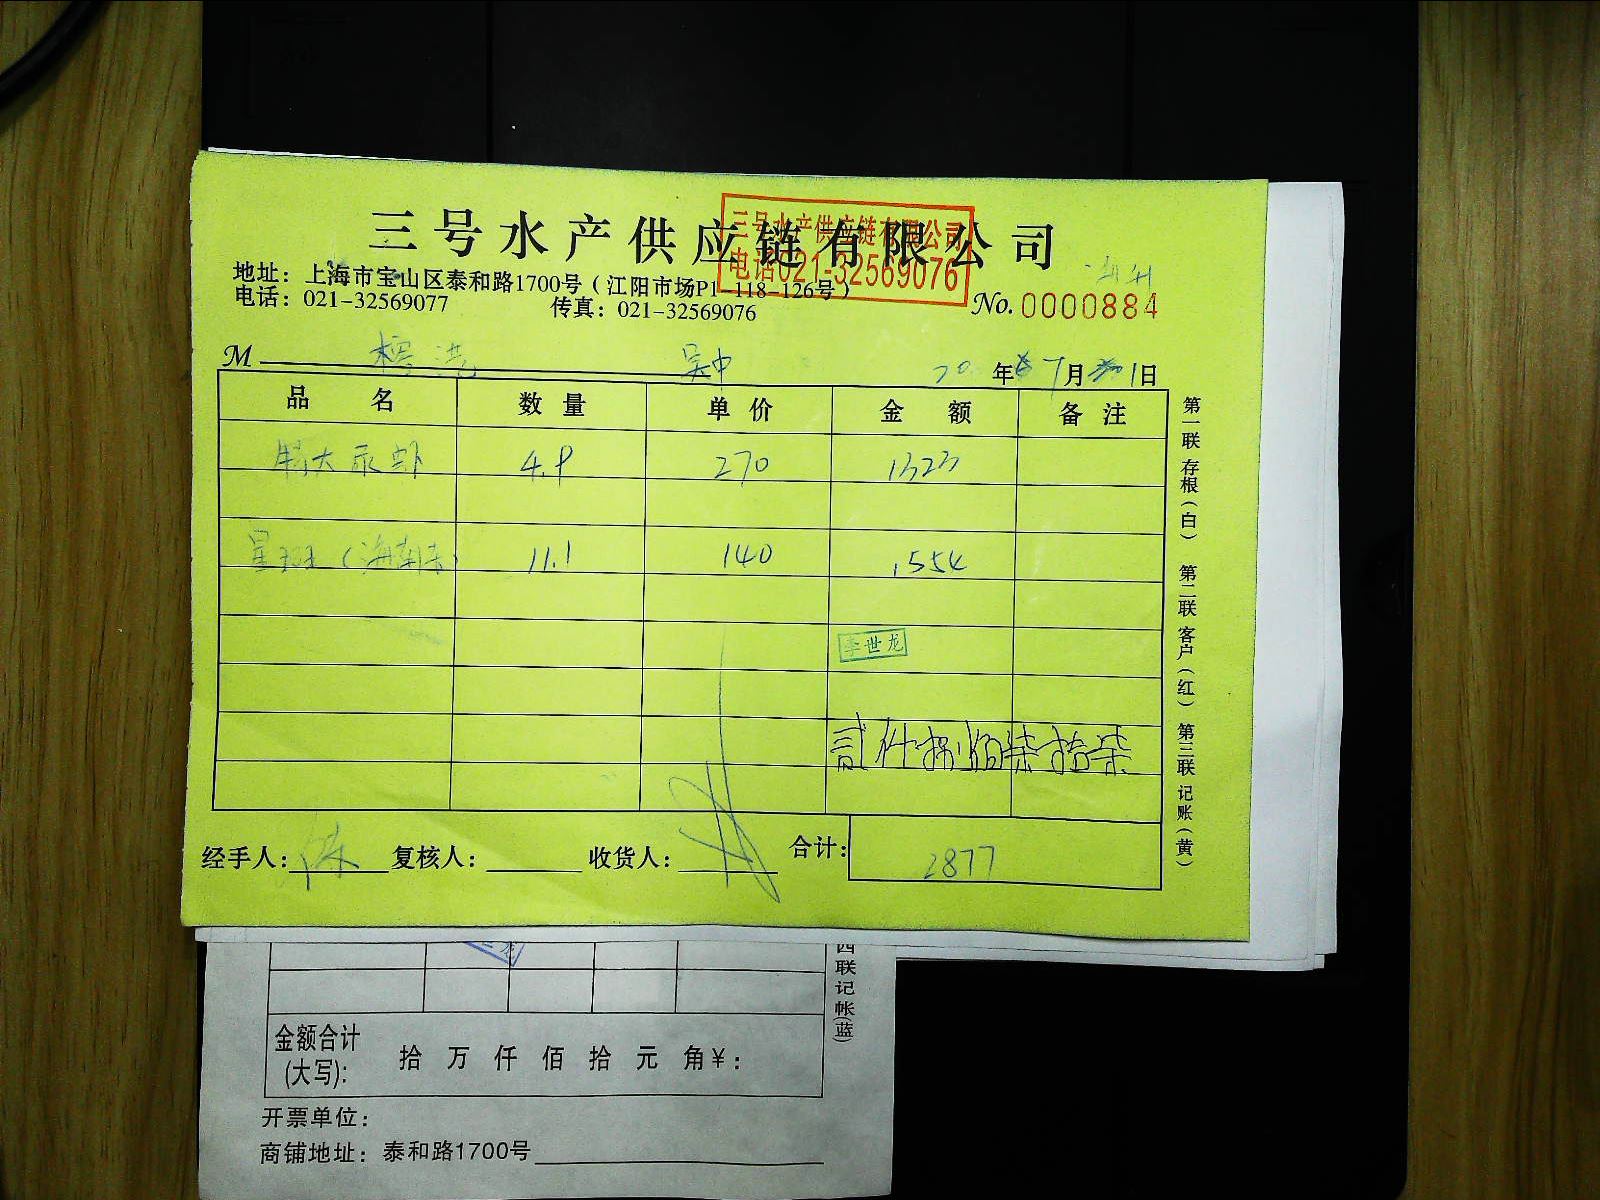 三号水产供应链有限公司
三号水产供应链有限公司
电话021-32569076
地址：上海市宝山区泰和路1700号（江阳市场P1-118-126号）
电话：021-32569077 传真：021-32569076
No. 0000884
M 吴中 20 年 7月 1日
品名 数量 单价 金额 备注
特大尿虾 4.9 270 1323
星斑（海南） 11.1 140 1554
李世龙
贰仟捌佰柒拾柒
经手人： 复核人： 收货人： 合计： 2877
第一联 存根（白） 第二联 客户（红） 第三联 记账（黄）
四联记帐(蓝)
金额合计
(大写)： 拾 万 仟 佰 拾 元 角￥：
开票单位：
商铺地址：泰和路1700号